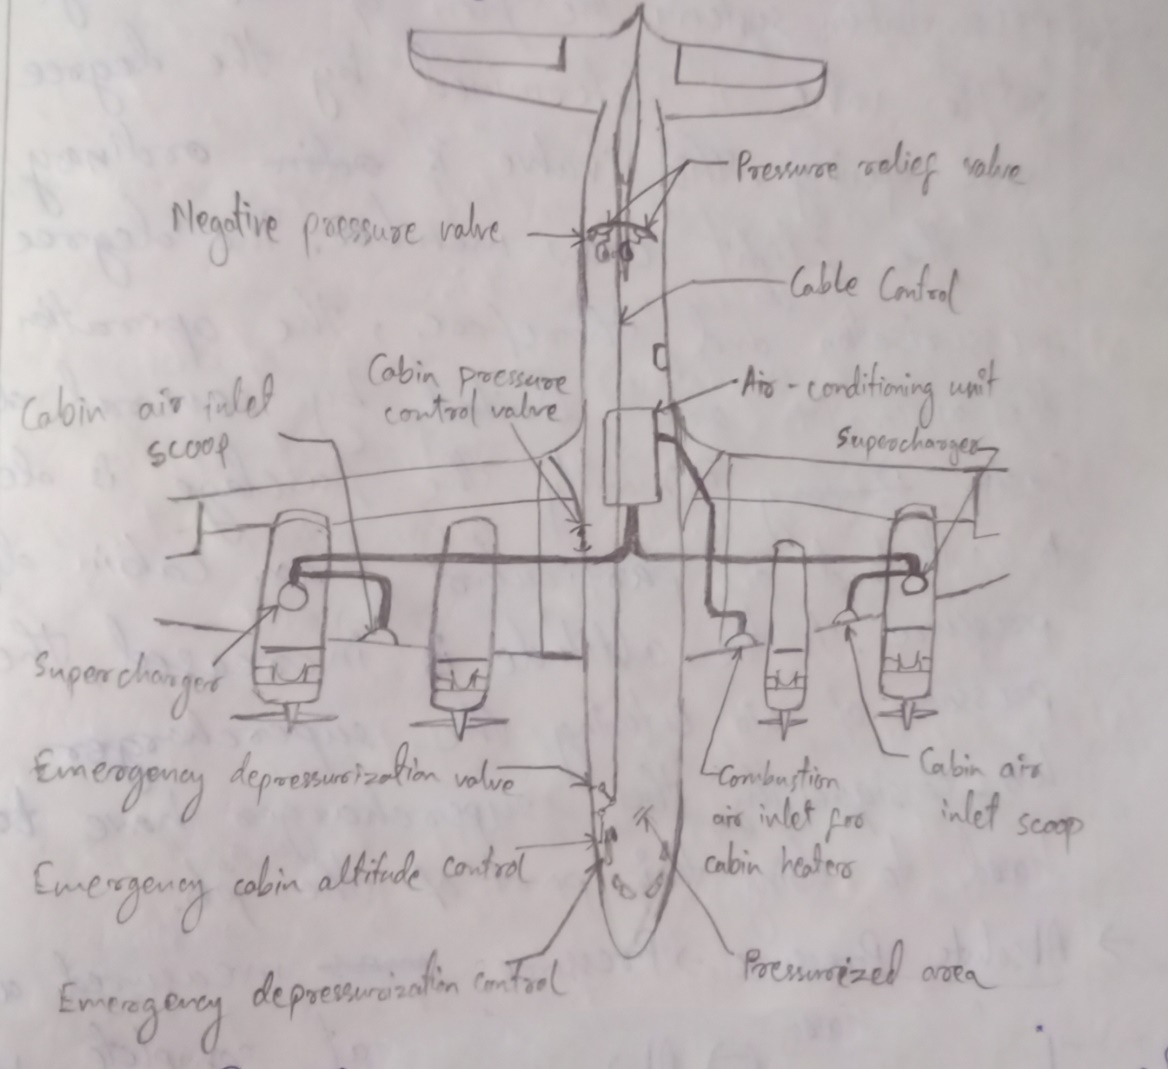 Pressure relief valve
Negative pressure valve
Cable Control
Cabin pressure
control valve
Air-conditioning unit
Cabin air inlet
scoop
Supercharger
Supercharger
Emergency depressurization valve
Combustion
air inlet for
cabin heaters
Cabin air
inlet scoop
Emergency cabin altitude control
Emergency depressurization control
Pressurized area